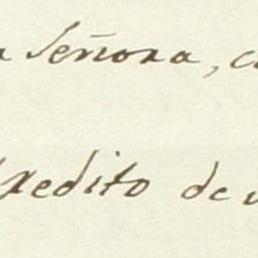 a Señora, c
credito de